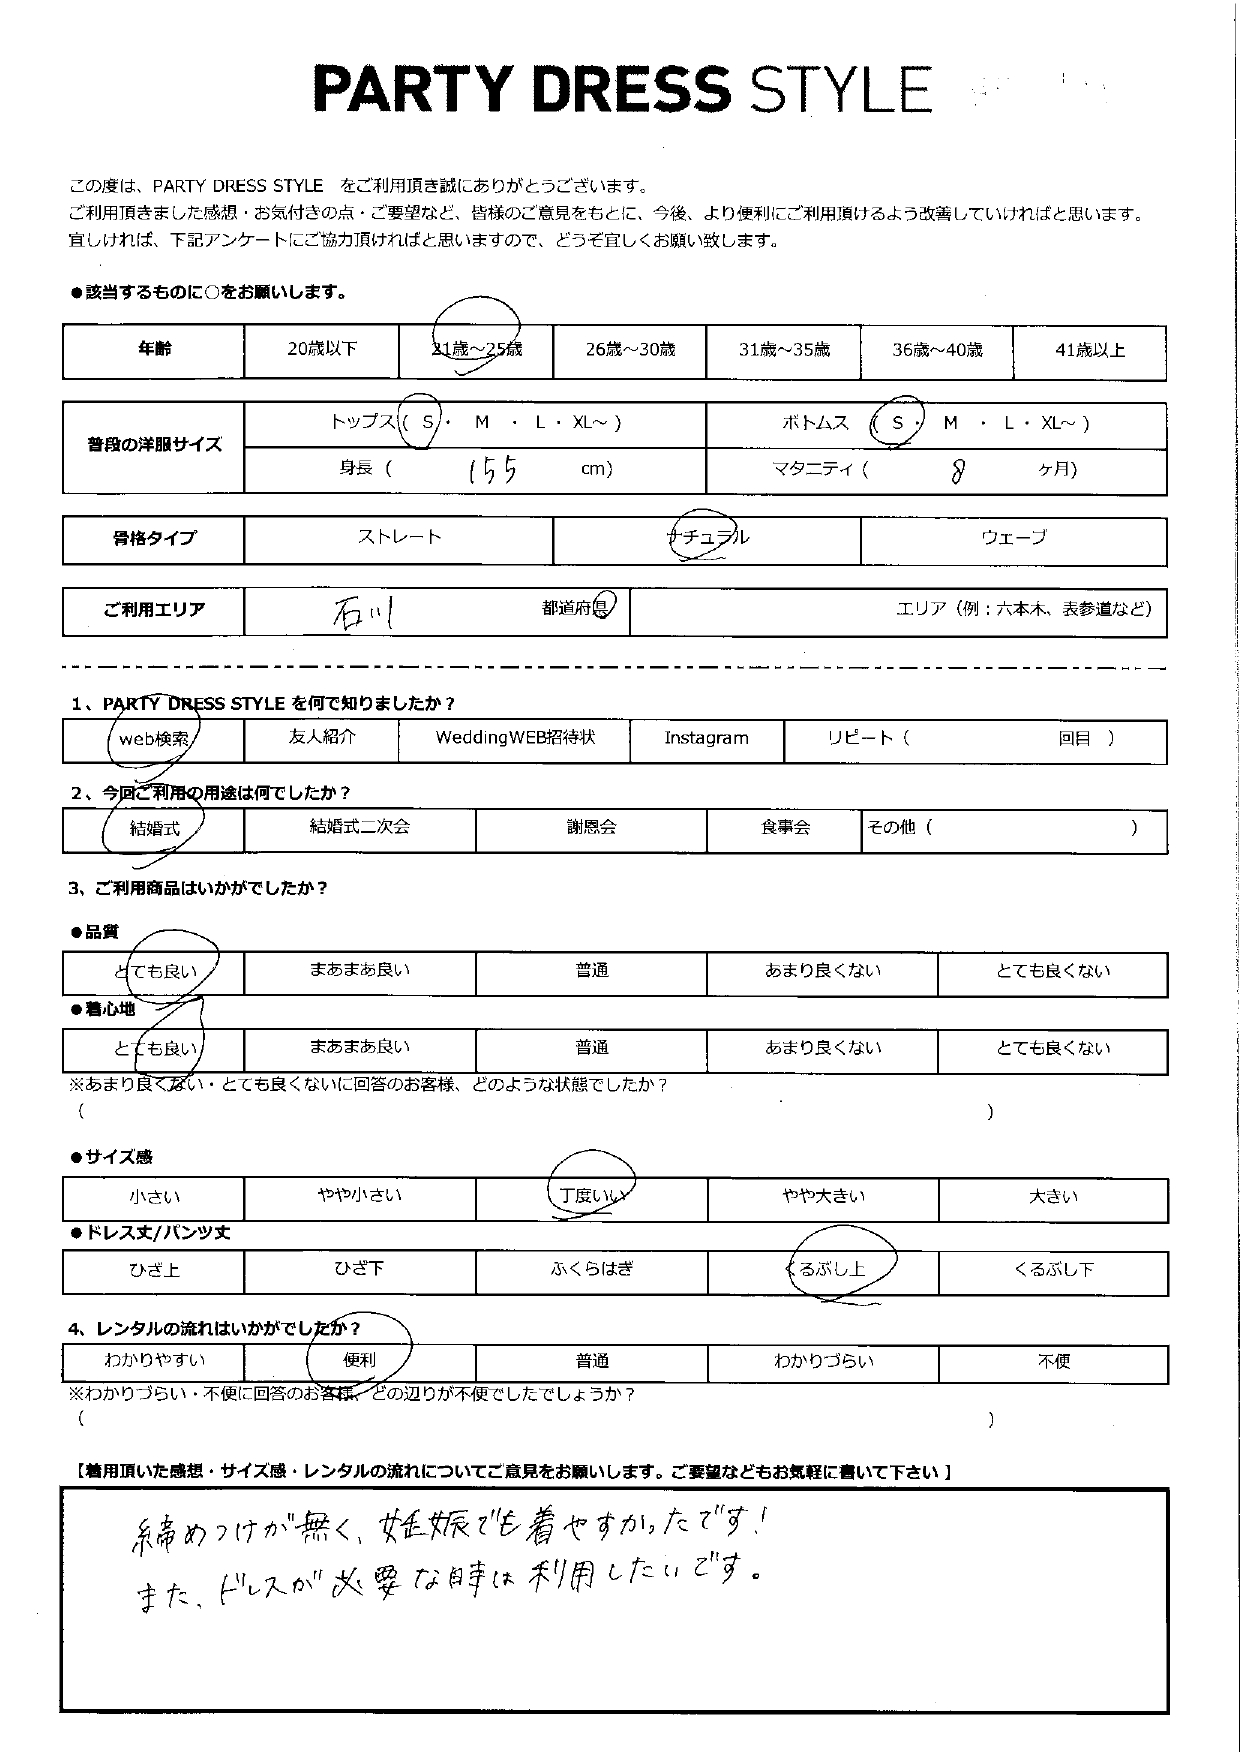 PARTY DRESS STYLE
この度は、PARTY DRESS STYLE　をご利用頂き誠にありがとうございます。
ご利用頂きました感想・お気付きの点・ご要望など、皆様のご意見をもとに、今後、より便利にご利用頂けるよう改善していければと思います。
宜しければ、下記アンケートにご協力頂ければと思いますので、どうぞ宜しくお願い致します。
●該当するものに○をお願いします。
年齢 20歳以下 21歳～25歳 26歳～30歳 31歳～35歳 36歳～40歳 41歳以上
普段の洋服サイズ トップス( S ・ M ・ L ・ XL～ ) ボトムス ( S ・ M ・ L ・ XL～ )
身長 ( 155 cm) マタニティ ( 8 ヶ月)
骨格タイプ ストレート ナチュラル ウェーブ
ご利用エリア 石川 都道府県 エリア（例：六本木、表参道など）
1、PARTY DRESS STYLE を何で知りましたか？
web検索 友人紹介 WeddingWEB招待状 Instagram リピート（ 回目 ）
2、今回ご利用の用途は何でしたか？
結婚式 結婚式二次会 謝恩会 食事会 その他（ ）
3、ご利用商品はいかがでしたか？
●品質
とても良い まあまあ良い 普通 あまり良くない とても良くない
●着心地
とても良い まあまあ良い 普通 あまり良くない とても良くない
※あまり良くない・とても良くないに回答のお客様、どのような状態でしたか？
( )
●サイズ感
小さい やや小さい 丁度いい やや大きい 大きい
●ドレス丈/パンツ丈
ひざ上 ひざ下 ふくらはぎ くるぶし上 くるぶし下
4、レンタルの流れはいかがでしたか？
わかりやすい 便利 普通 わかりづらい 不便
※わかりづらい・不便に回答のお客様、どの辺りが不便でしたでしょうか？
( )
【着用頂いた感想・サイズ感・レンタルの流れについてご意見をお願いします。ご要望などもお気軽に書いて下さい 】
締めつけが無く、妊娠でも着やすかったです！
また、ドレスが必要な時は利用したいです。